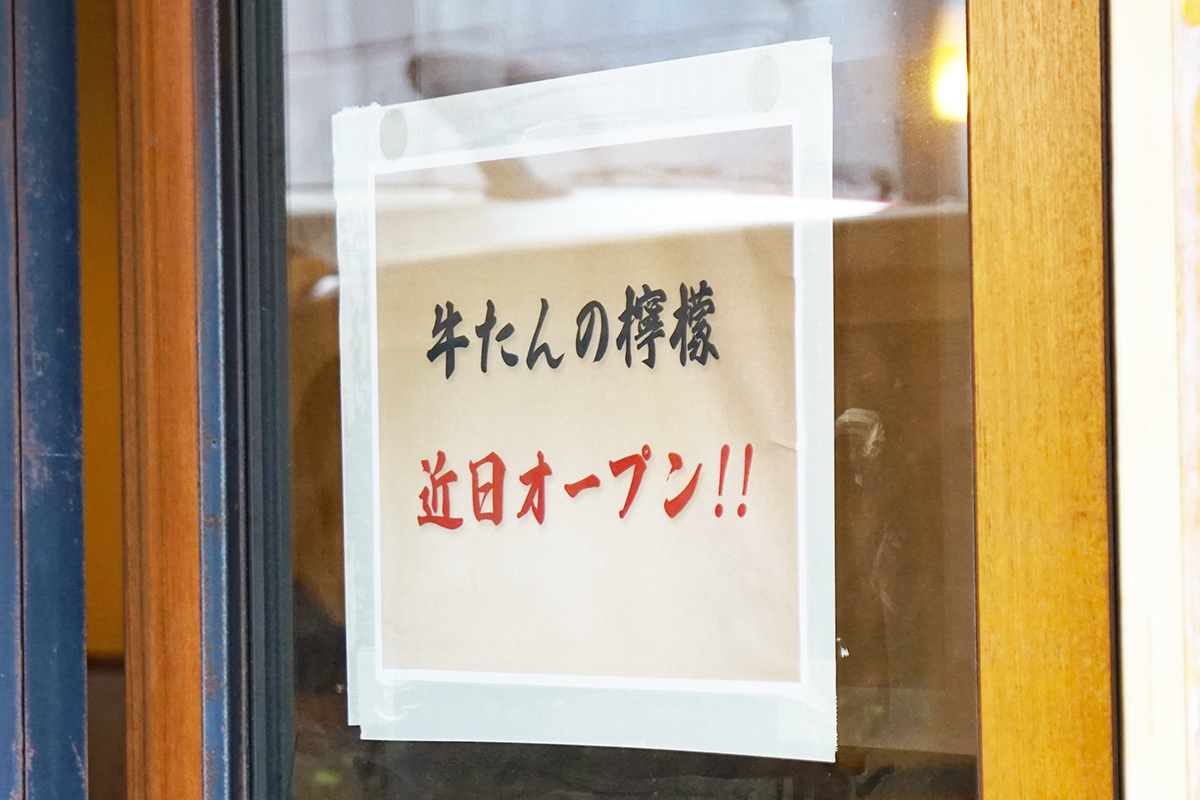 牛たんの檸檬
近日オープン!!